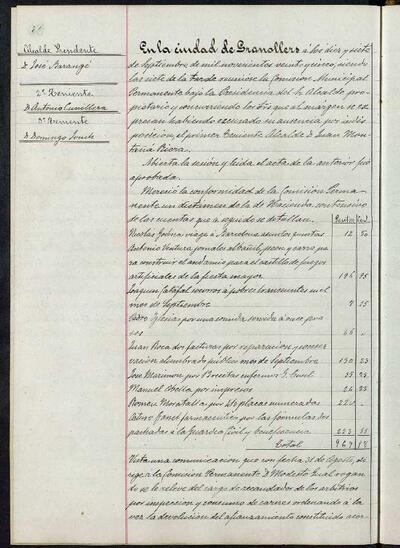 Alcalde Presidente
D. José Barangé
2º Teniente
D. Antonio Cumellera
3º Teniente
D. Domingo
En la ciudad de Granollers á los diez y siete
de Septiembre de mil novecientos veinticinco, siendo
las siete de la tarde reunióse la Comisión Municipal
Permanente bajo la Presidencia del Sr. Alcalde pro-
pietario y concurriendo los Sres. que al margen se ex-
presan habiendo excusado su ausencia por indis-
posición el primer Teniente Alcalde D. Juan Mon-
taña Riera.
Abierta la sesión y leida el acta de la anterior fué
aprobada.
Mereció la conformidad de la Comisión Perma-
nente un dictamen de la de Hacienda contensivo
de las cuentas que á seguido se detallan. Pesetas Cts.
Nicolás viaje á Barcelona asuntos quintas 12 50
Antonio Ventura jornales albañil, peon y carro pa-
ra construir el andamio para el castillo de fuegos
artificiales de la fiesta mayor 196 95
Joaquin socorros á pobres transeuntes en el
mes de Septiembre 7 25
Pedro Iglesias por una comida servida á once
66 "
Juan Roca dos facturas por reparación y conser-
vación alumbrado público mes de Septiembre 130 23
José Marimon por enfermos G. Civil
Manuel por impresos 26
Romeu Moratalla por 26 placas numeradas 220 "
Ganet farmacéutico por las fórmulas des-
pachadas á la Guardia Civil y Beneficencia 223
Total 967 18
Vista una comunicación que con fecha 31 de Agosto di-
rige á la Comisión Permanente D. Modesto rogan-
do se le releve del cargo de recaudador de los arbitrios
por inspección y consumo de carnes ordenando á la
vez la devolución del afianzamiento constituido acor-